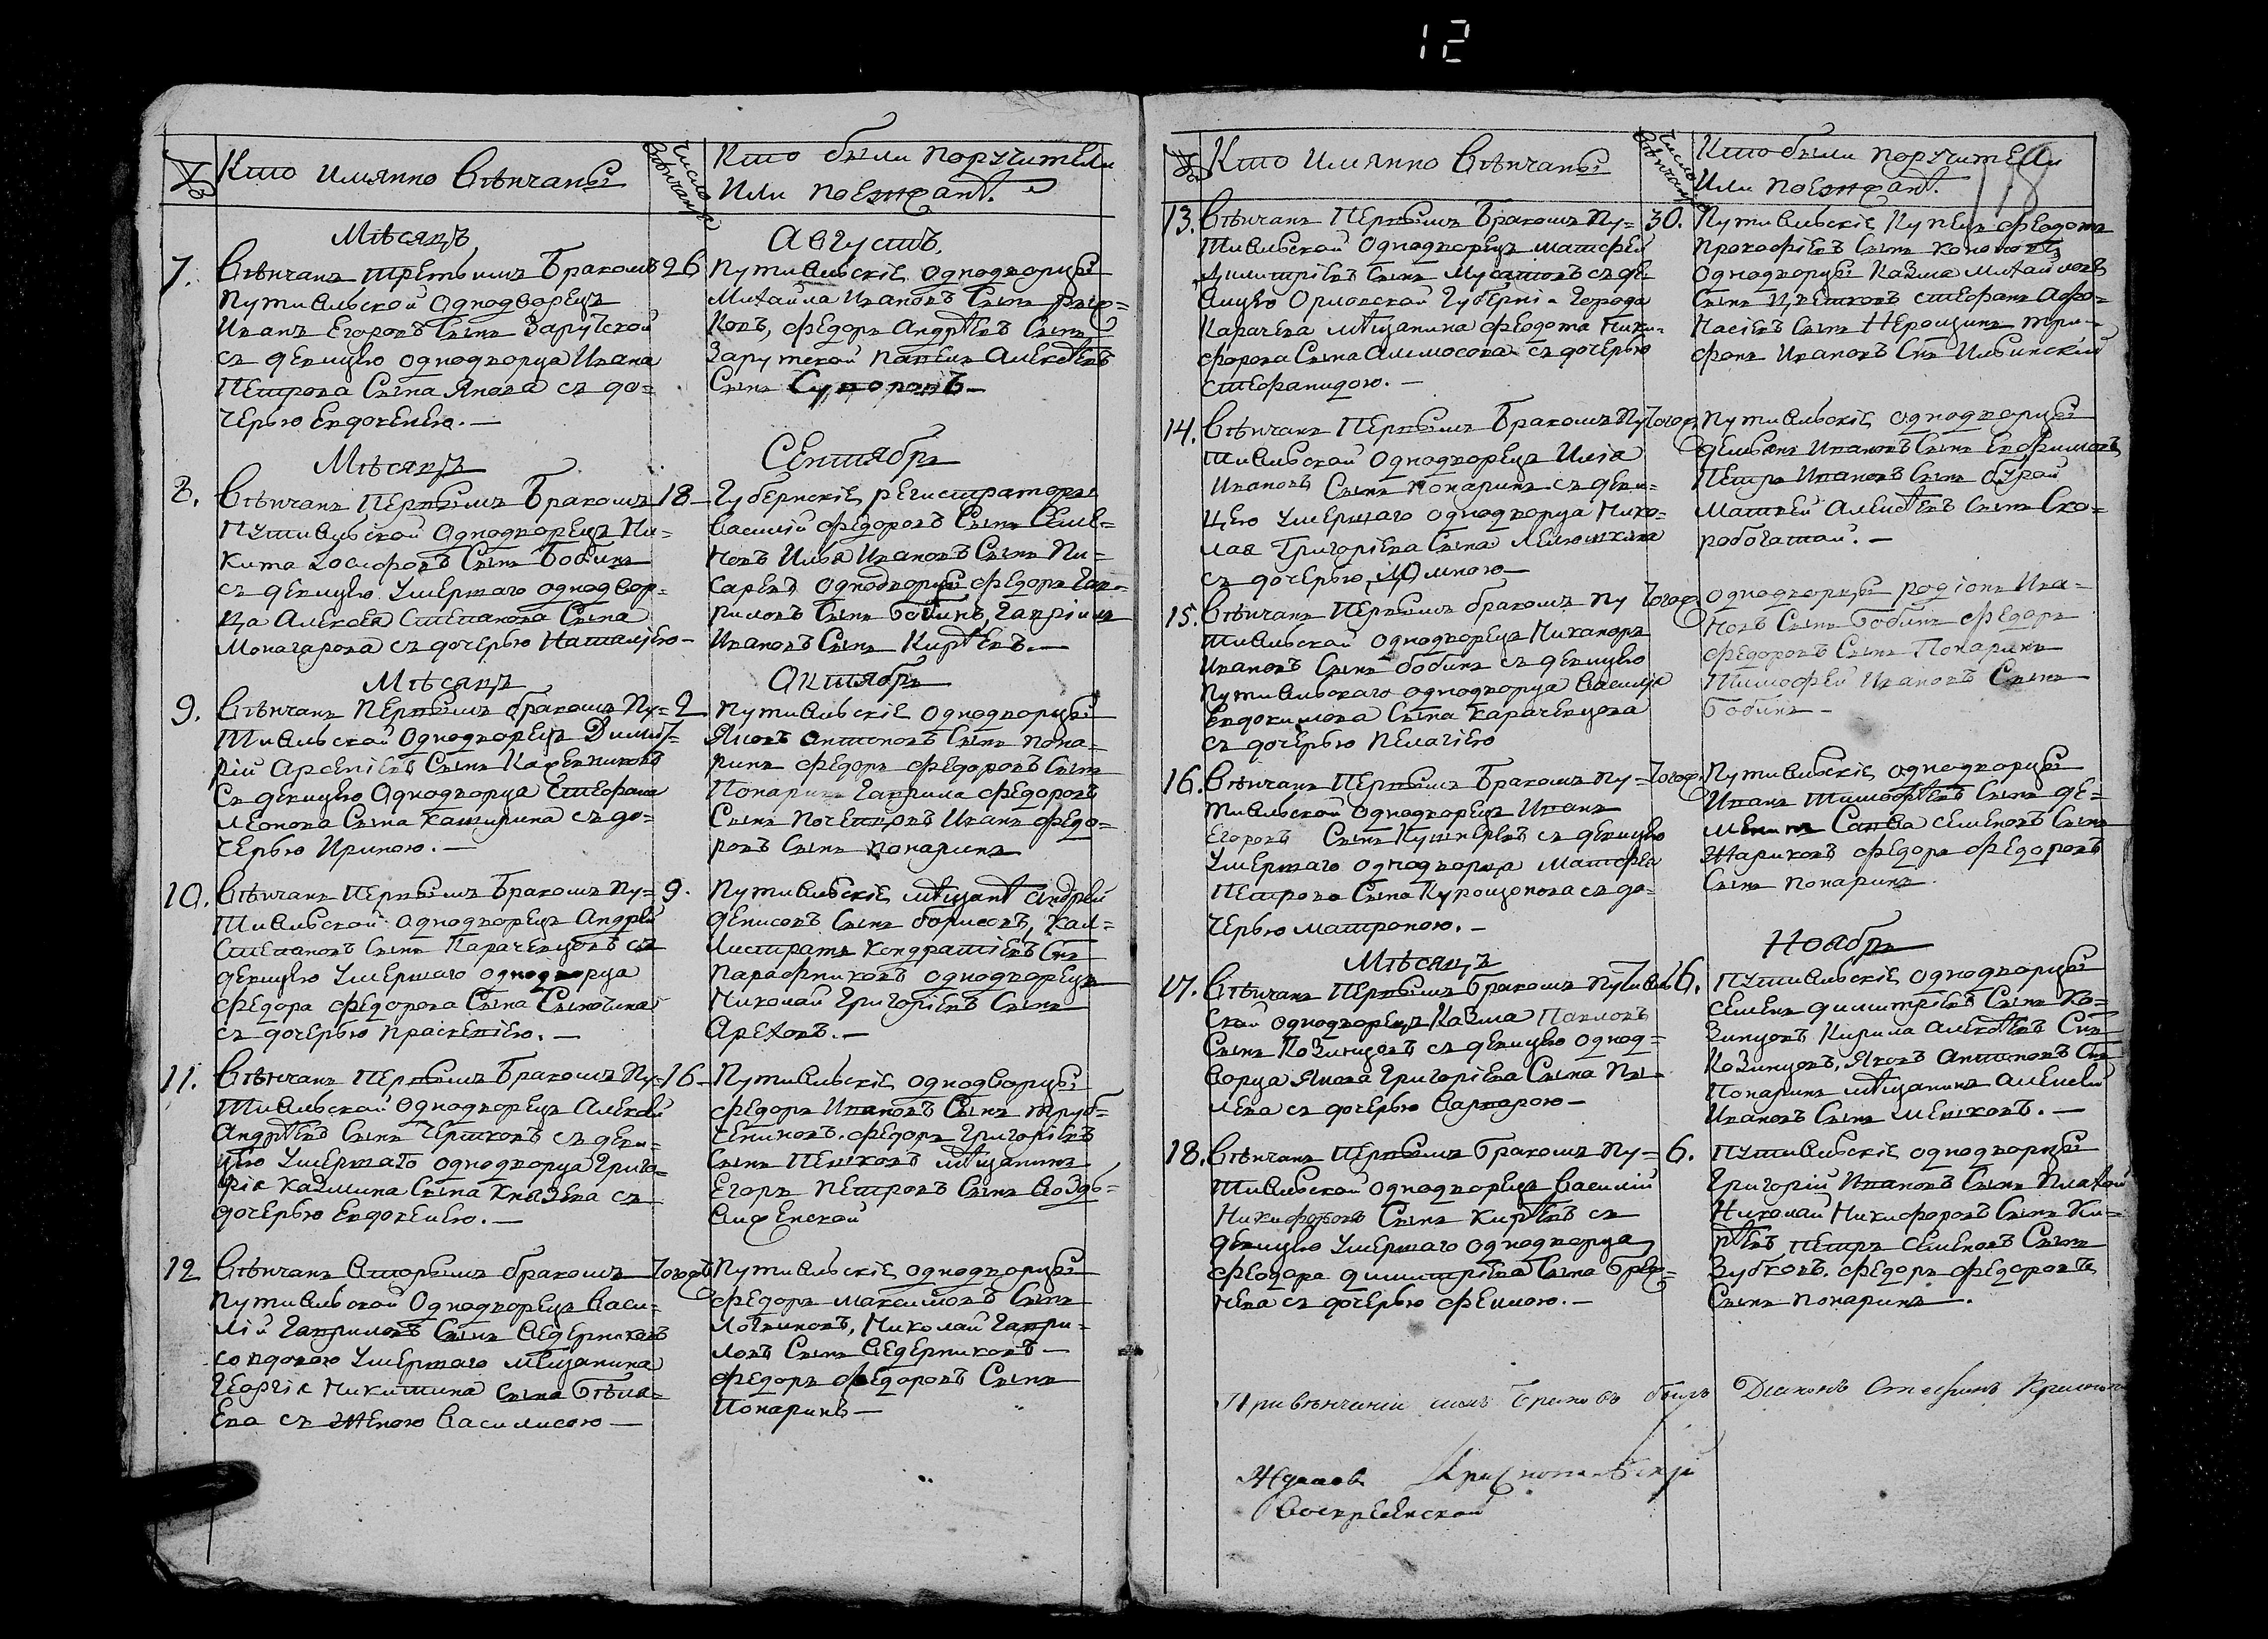 12
№
Кто имянно вѣнчаны
Число вѣнчанія
Кто были поручители
или поезжанѣ.
Мѣсяцъ
Августъ
7. Вѣнчанъ третьимъ бракомъ 26
Путивльской однодворецъ
Иванъ Егоровъ сынъ Заруцкой
съ девицею однодворца Ивана
Петрова сына Янова съ до=
черью Евдокеиею. —
Путивльскіе однодворцы
Михайла Ивановъ сынъ
ковъ, Федоръ Андрѣевъ сынъ
Заруцкой Павелъ Алексѣевъ
сынъ Супоровъ —
Мѣсяцъ
Сентябрь
8. Вѣнчанъ первымъ бракомъ 18
Путивльской однодворецъ Ни=
кита Иосифовъ сынъ Бобинъ
съ девицею умершаго однодвор=
ца Алексея Степанова сына
Моногарова съ дочерью Наталиею —
Губернскіе регистраторы
Василій Федоровъ сынъ Семе=
новъ Илья Ивановъ сынъ Пи=
саревъ однодворцы Федоръ Гав=
риловъ сынъ Бобинъ, Гавріилъ
Ивановъ сынъ Кирѣевъ. —
Мѣсяцъ
Октябрь
9. Вѣнчанъ первымъ бракомъ Пу= 2
тивльской однодворецъ Димит=
рій Арсеніевъ сынъ
съ девицею однодворца Стефана
Леонова сына Каширина съ до=
черью Ириною. —
Путивльскіе однодворцы
Яковъ Антоновъ сынъ Пона=
ринъ Федоръ Федоровъ сынъ
Понаринъ Гаврила Федоровъ
сынъ Иванъ Федо=
ровъ сынъ Понаринъ
10. Вѣнчанъ первымъ бракомъ Пу= 9.
тивльской однодворецъ Андрей
Степановъ сынъ Карачевцовъ съ
девицею умершаго однодворца
Федора Федорова сына
съ дочерью Праскевіею. —
Путивльскіе мѣщанѣ Андрей
Денисовъ сынъ Борисовъ, Кал=
листратъ Кондратіевъ снъ
Парафниковъ однодворецъ
Николай Григоріевъ сынъ
Ареховъ. —
11. Вѣнчанъ первымъ бракомъ Пу= 16
тивльской однодворецъ Алексѣй
Андрѣевъ сынъ Чертковъ съ деви=
цею умершаго однодворца Григо=
рія Казмина сына Князева съ
дочерью Евдокеиею. —
Путивльскіе однодворцы
Федоръ Ивановъ сынъ Труб=
чениновъ. Федоръ Григоріевъ
сынъ Пешковъ мѣщанинъ
Егоръ Петровъ сынъ Воздви=
женской
12 Вѣнчанъ вторымъ бракомъ тогожъ
Путивльской однодворецъ Васи=
лій Гавриловъ сынъ Ведерниковъ
со вдовою умершаго мещанина
Георгія Никитина сына Бѣла=
ева съ женою Василисою —
Путивльскіе однодворцы
Федоръ Максимовъ сынъ
Логвиновъ, Николай Гаври=
ловъ сынъ Ведерниковъ —
Федоръ Федоровъ сынъ
Понаринъ —
№
Кто имянно вѣнчаны
Число вѣнчанія
Кто были поручители
или поезжанѣ.
18
13. Вѣнчанъ первымъ бракомъ Пу= 30.
тивльской однодворецъ Матфей
Димитріевъ сынъ Мусатовъ съ де
вицею Орловской губерніи города
Карачева мѣщанина Феодота Ники=
форова сына Алимосова съ дочерью
Стефанидою. —
Путивльскіе купецъ Федотъ
Прокофіевъ сынъ Кононовъ
однодворцы Казма Михайловъ
сынъ Стефанъ Афо=
насіевъ сынъ Три=
фонъ Ивановъ снъ Ильинскій
14. Вѣнчанъ первымъ бракомъ Пу тогожъ
тивльской однодворецъ Иліа
Ивановъ сынъ Понаринъ съ деви=
цею умершаго однодворца Нико=
лая Григоріева сына
съ дочерью
Путивльскіе однодворцы
Демьянъ Ивановъ сынъ Евфимовъ
Петръ Ивановъ сынъ Бурой
Матвей Алексѣевъ сынъ Ско=
робогатай. —
15. Вѣнчанъ первымъ бракомъ Пу тогожъ
тивльской однодворецъ Никаноръ
Ивановъ сынъ Бобинъ съ девицею
Путивльскаго однодворца Василія
Евдокимова сына Карачевцова
съ дочерью Пелагіею
однодворцы Родіонъ Ива=
новъ сынъ Бобинъ Федоръ
Федоровъ сынъ Понаринъ
Тимофей Ивановъ сынъ
Бобинъ —
16. Вѣнчанъ первымъ бракомъ Пу= тогожъ.
тивльской однодворецъ Иванъ
Егоровъ сынъ Кушнеревъ съ девицею
умершаго однодворца Матфея
Петрова сына Курощопова съ до=
черью Матроною. —
Путивльскіе однодворцы
Иванъ Тимофѣевъ сынъ Де=
менинъ Савва Семеновъ сынъ
Жариковъ Федоръ Федоровъ
сынъ Понаринъ
Мѣсяцъ
Ноябрь
17. Вѣнчанъ первымъ бракомъ Путивль 6.
ской однодворецъ Казма Павловъ
сынъ Козинцовъ съ девицею однод=
ворца Якова Григоріева сына
съ дочерью Варварою —
Путивльскіе однодворцы
Семенъ Димитріевъ сынъ Ко=
зинцовъ Кирила Алексѣевъ снъ
Козинцовъ, Яковъ Антоновъ снъ
Понаринъ мѣщанинъ Алексей
Ивановъ сынъ Мешковъ. —
18. Вѣнчанъ первымъ бракомъ Пу= 6.
тивльской однодворецъ Василій
Никифоровъ сынъ Кирѣевъ съ
девицею умершаго однодворца
Феодора Димитріева сына
съ дочерью Феклою. —
Путивльскіе однодворцы
Григорій Ивановъ сынъ Плахой
Николай Никифоровъ сынъ Ки=
рѣевъ Петръ Семеновъ сынъ
Зубковъ. Федоръ Федоровъ
сынъ Понаринъ.
При вѣнчаніи сихъ браковъ былъ Діаконъ Стефанъ
Воскресенской